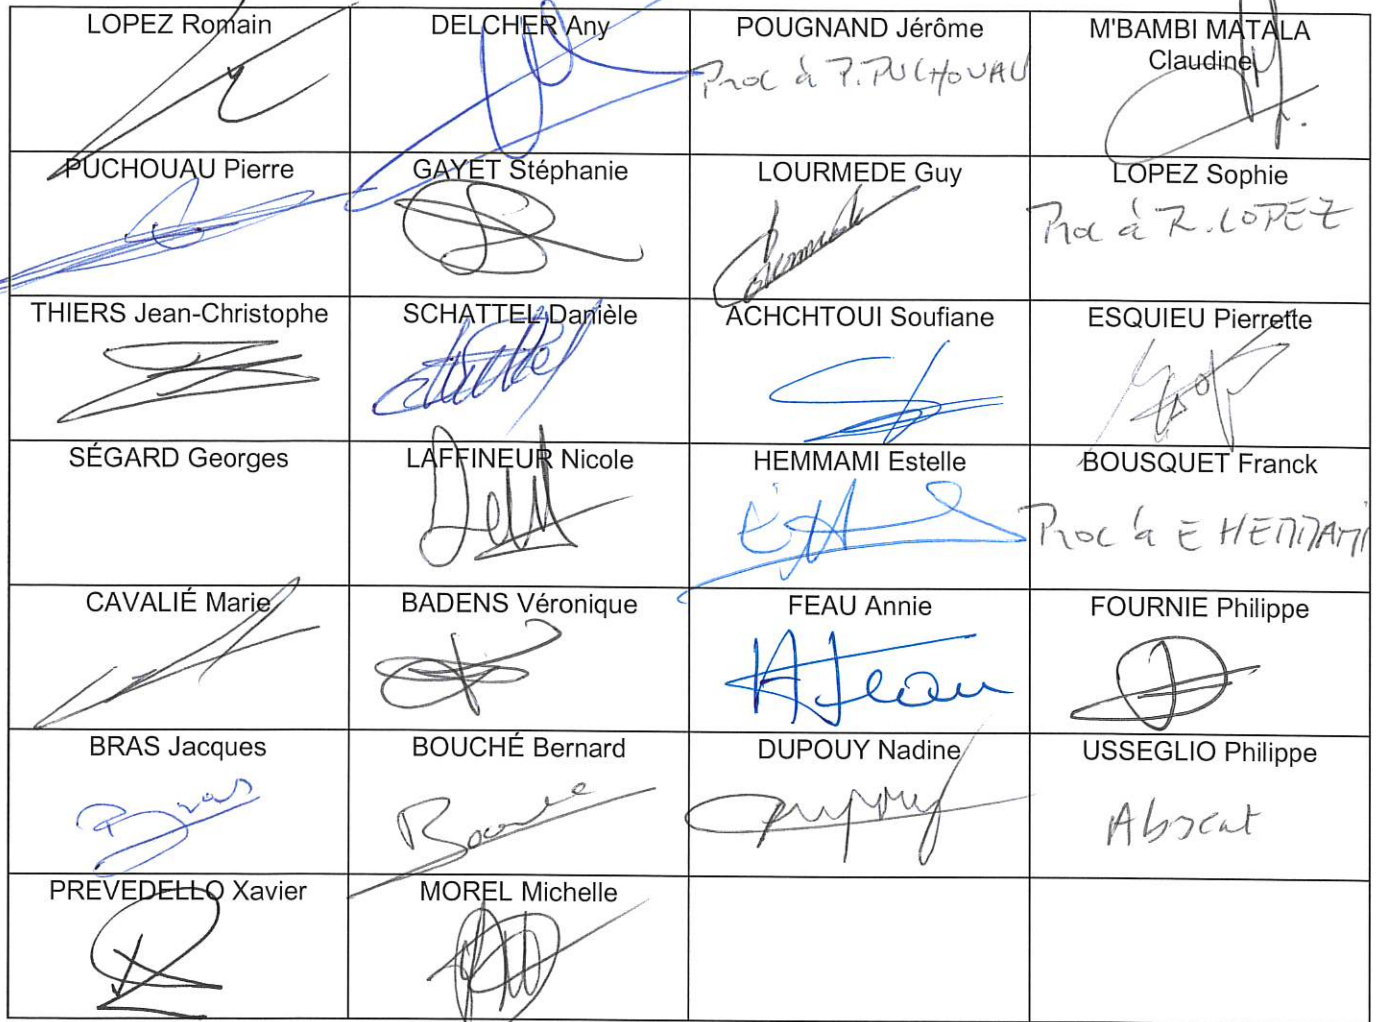 LOPEZ Romain
DELCHER Any
POUGNAND Jérôme
Proc à P. PUCHOUAU
M'BAMBI MATALA
Claudine
PUCHOUAU Pierre
GAYET Stéphanie
LOURMEDE Guy
LOPEZ Sophie
Proc à R. LOPEZ
THIERS Jean-Christophe
SCHATTEL Danièle
ACHCHTOUI Soufiane
ESQUIEU Pierrette
SÉGARD Georges
LAFFINEUR Nicole
HEMMAMI Estelle
BOUSQUET Franck
Proc à E HEMMAMI
CAVALIÉ Marie
BADENS Véronique
FEAU Annie
A Feau
FOURNIE Philippe
BRAS Jacques
Bras
BOUCHÉ Bernard
DUPOUY Nadine
USSEGLIO Philippe
Absent
PREVEDELLO Xavier
MOREL Michelle